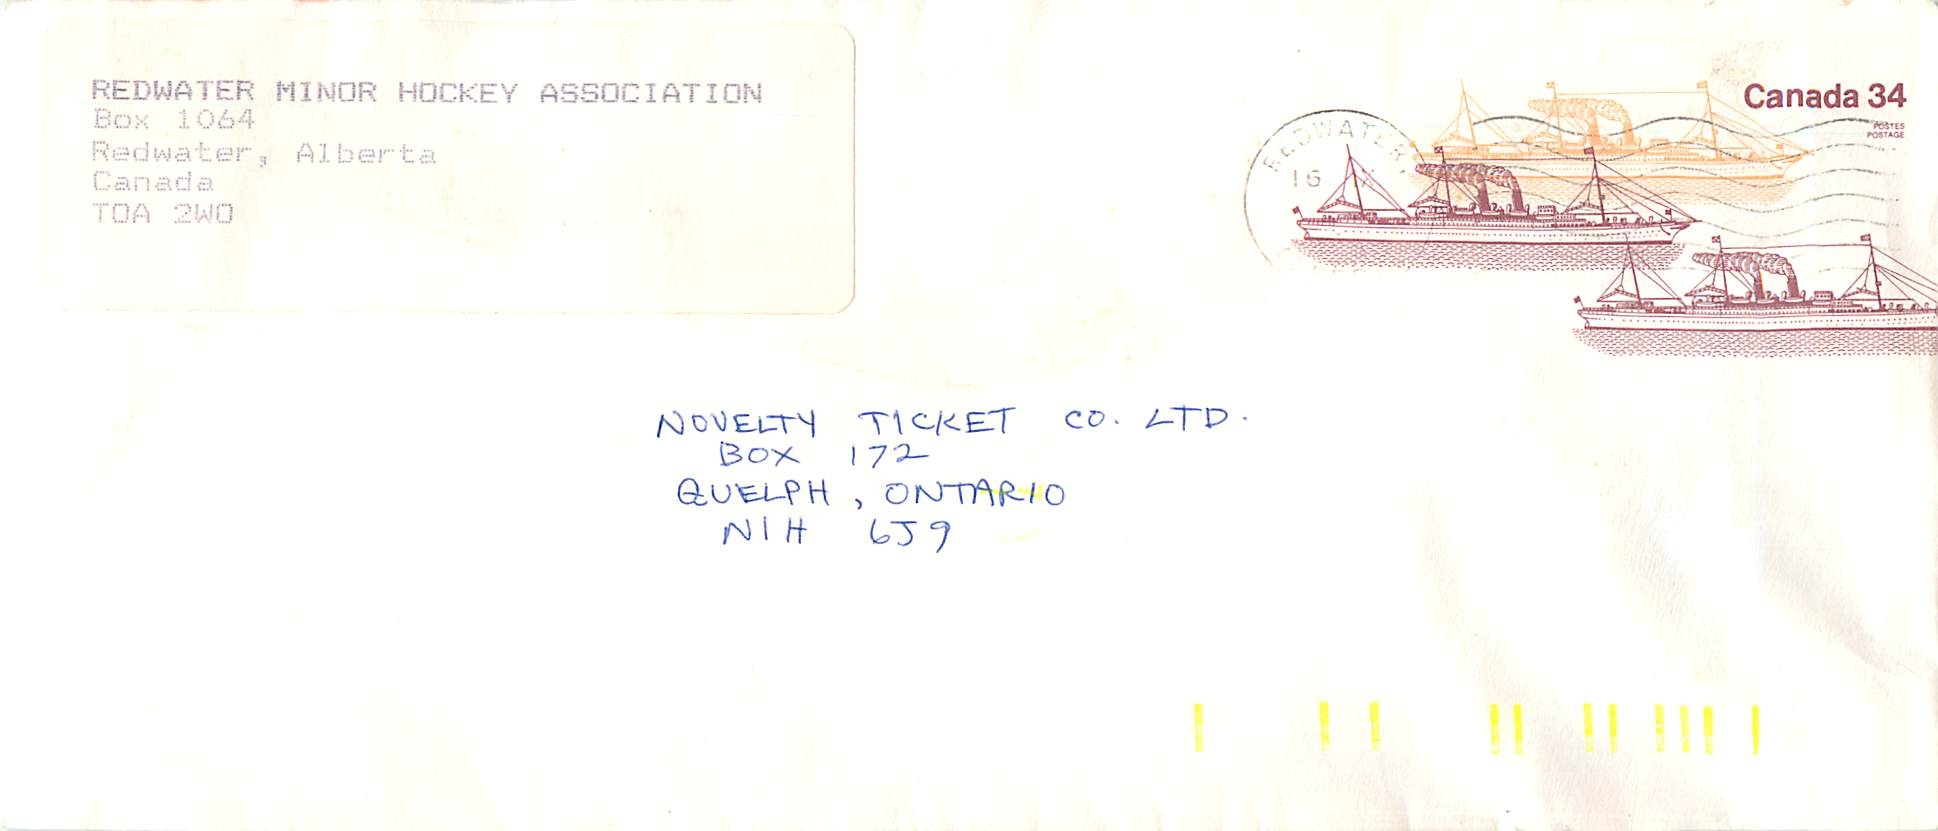 REDWATER MINOR HOCKEY ASSOCIATION
Box 1064
Redwater, Alberta
Canada
T0A 2W0
Canada 34
POSTES
POSTAGE
REDWATER
16 X
NOVELTY TICKET CO. LTD.
BOX 172
GUELPH, ONTARIO
N1H 6J9